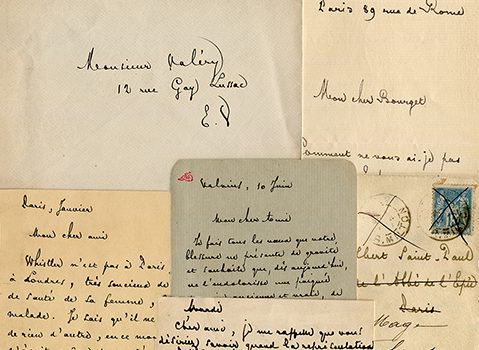 Monsieur Valéry
12 rue Gay Lussac
E.V
Paris 89 rue de Rome
Mon cher Bourget
Comment ne vous ai-je pas
Paris, Janvier
Mon cher ami
Whistler n'est pas à Paris
à Londres, très soucieux de
de santé de sa femme,
malade. Je sais qu'il me
de rien d'autre, en ce mo
Valvins, 10 Juin
Mon cher ami
Je fais tous les vœux que votre
blessure ne présente de gravité
et souhaite que, dès aujourd'hui,
ne s'endolorisse une poignée
ancienne et vraie, de
Mardi
Cher ami, je me rappelle que vous
désiriez savoir quand la représentation
Albert Saint-Paul
rue de l'Abbé de l'Epée
Paris